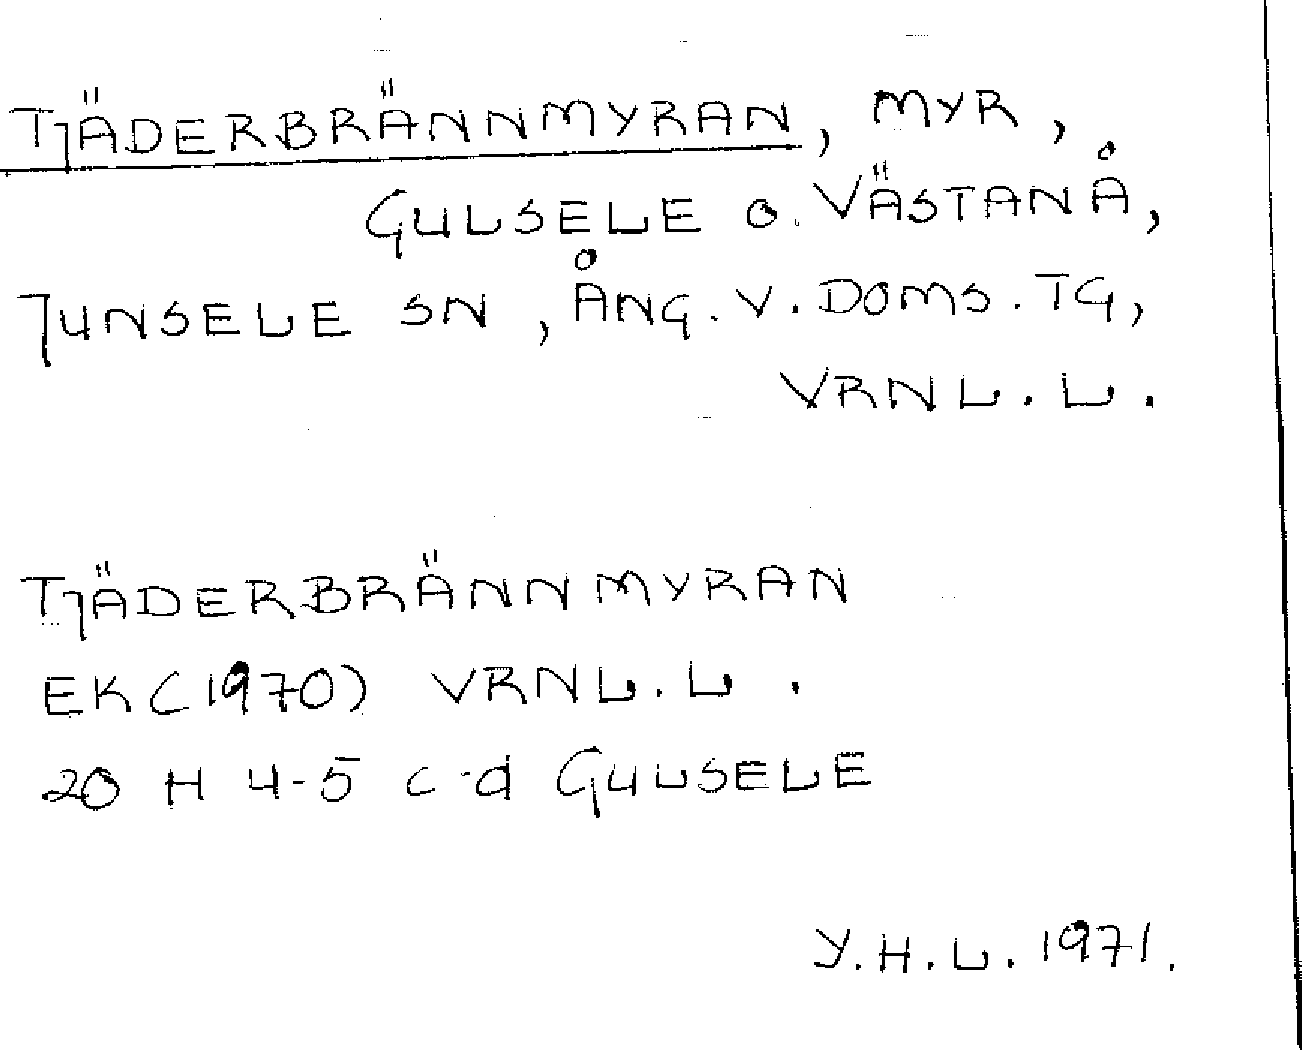 TJÄDERBRÄNNMYRAN, MYR,
GULSELE O. VÄSTANÅ,
JUNSELE SN, ÅNG. V. DOMS. TG,
VRNL. L.
TJÄDERBRÄNNMYRAN
EK (1970) VRNL. L.
20 H 4-5 c-d GULSELE
Y. H. L. 1971.